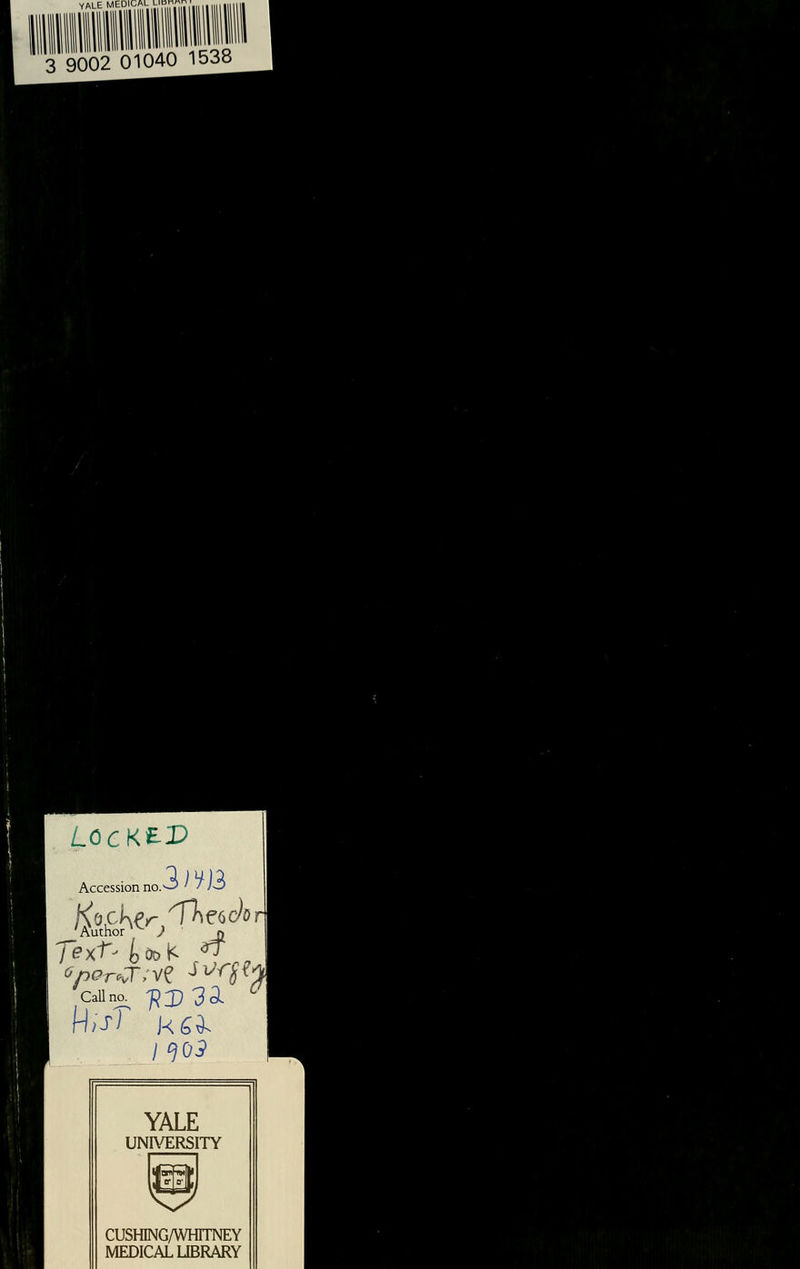 YALE MEDICAL LIBRARY
3 9002 01040 1538
LOCKED
Accession no. 31413
Kocher, Theodor
Author
Text-book of
operative surgery
Call no. RD 32
Hist K62
1903
YALE
UNIVERSITY
CUSHING/WHITNEY
MEDICAL LIBRARY